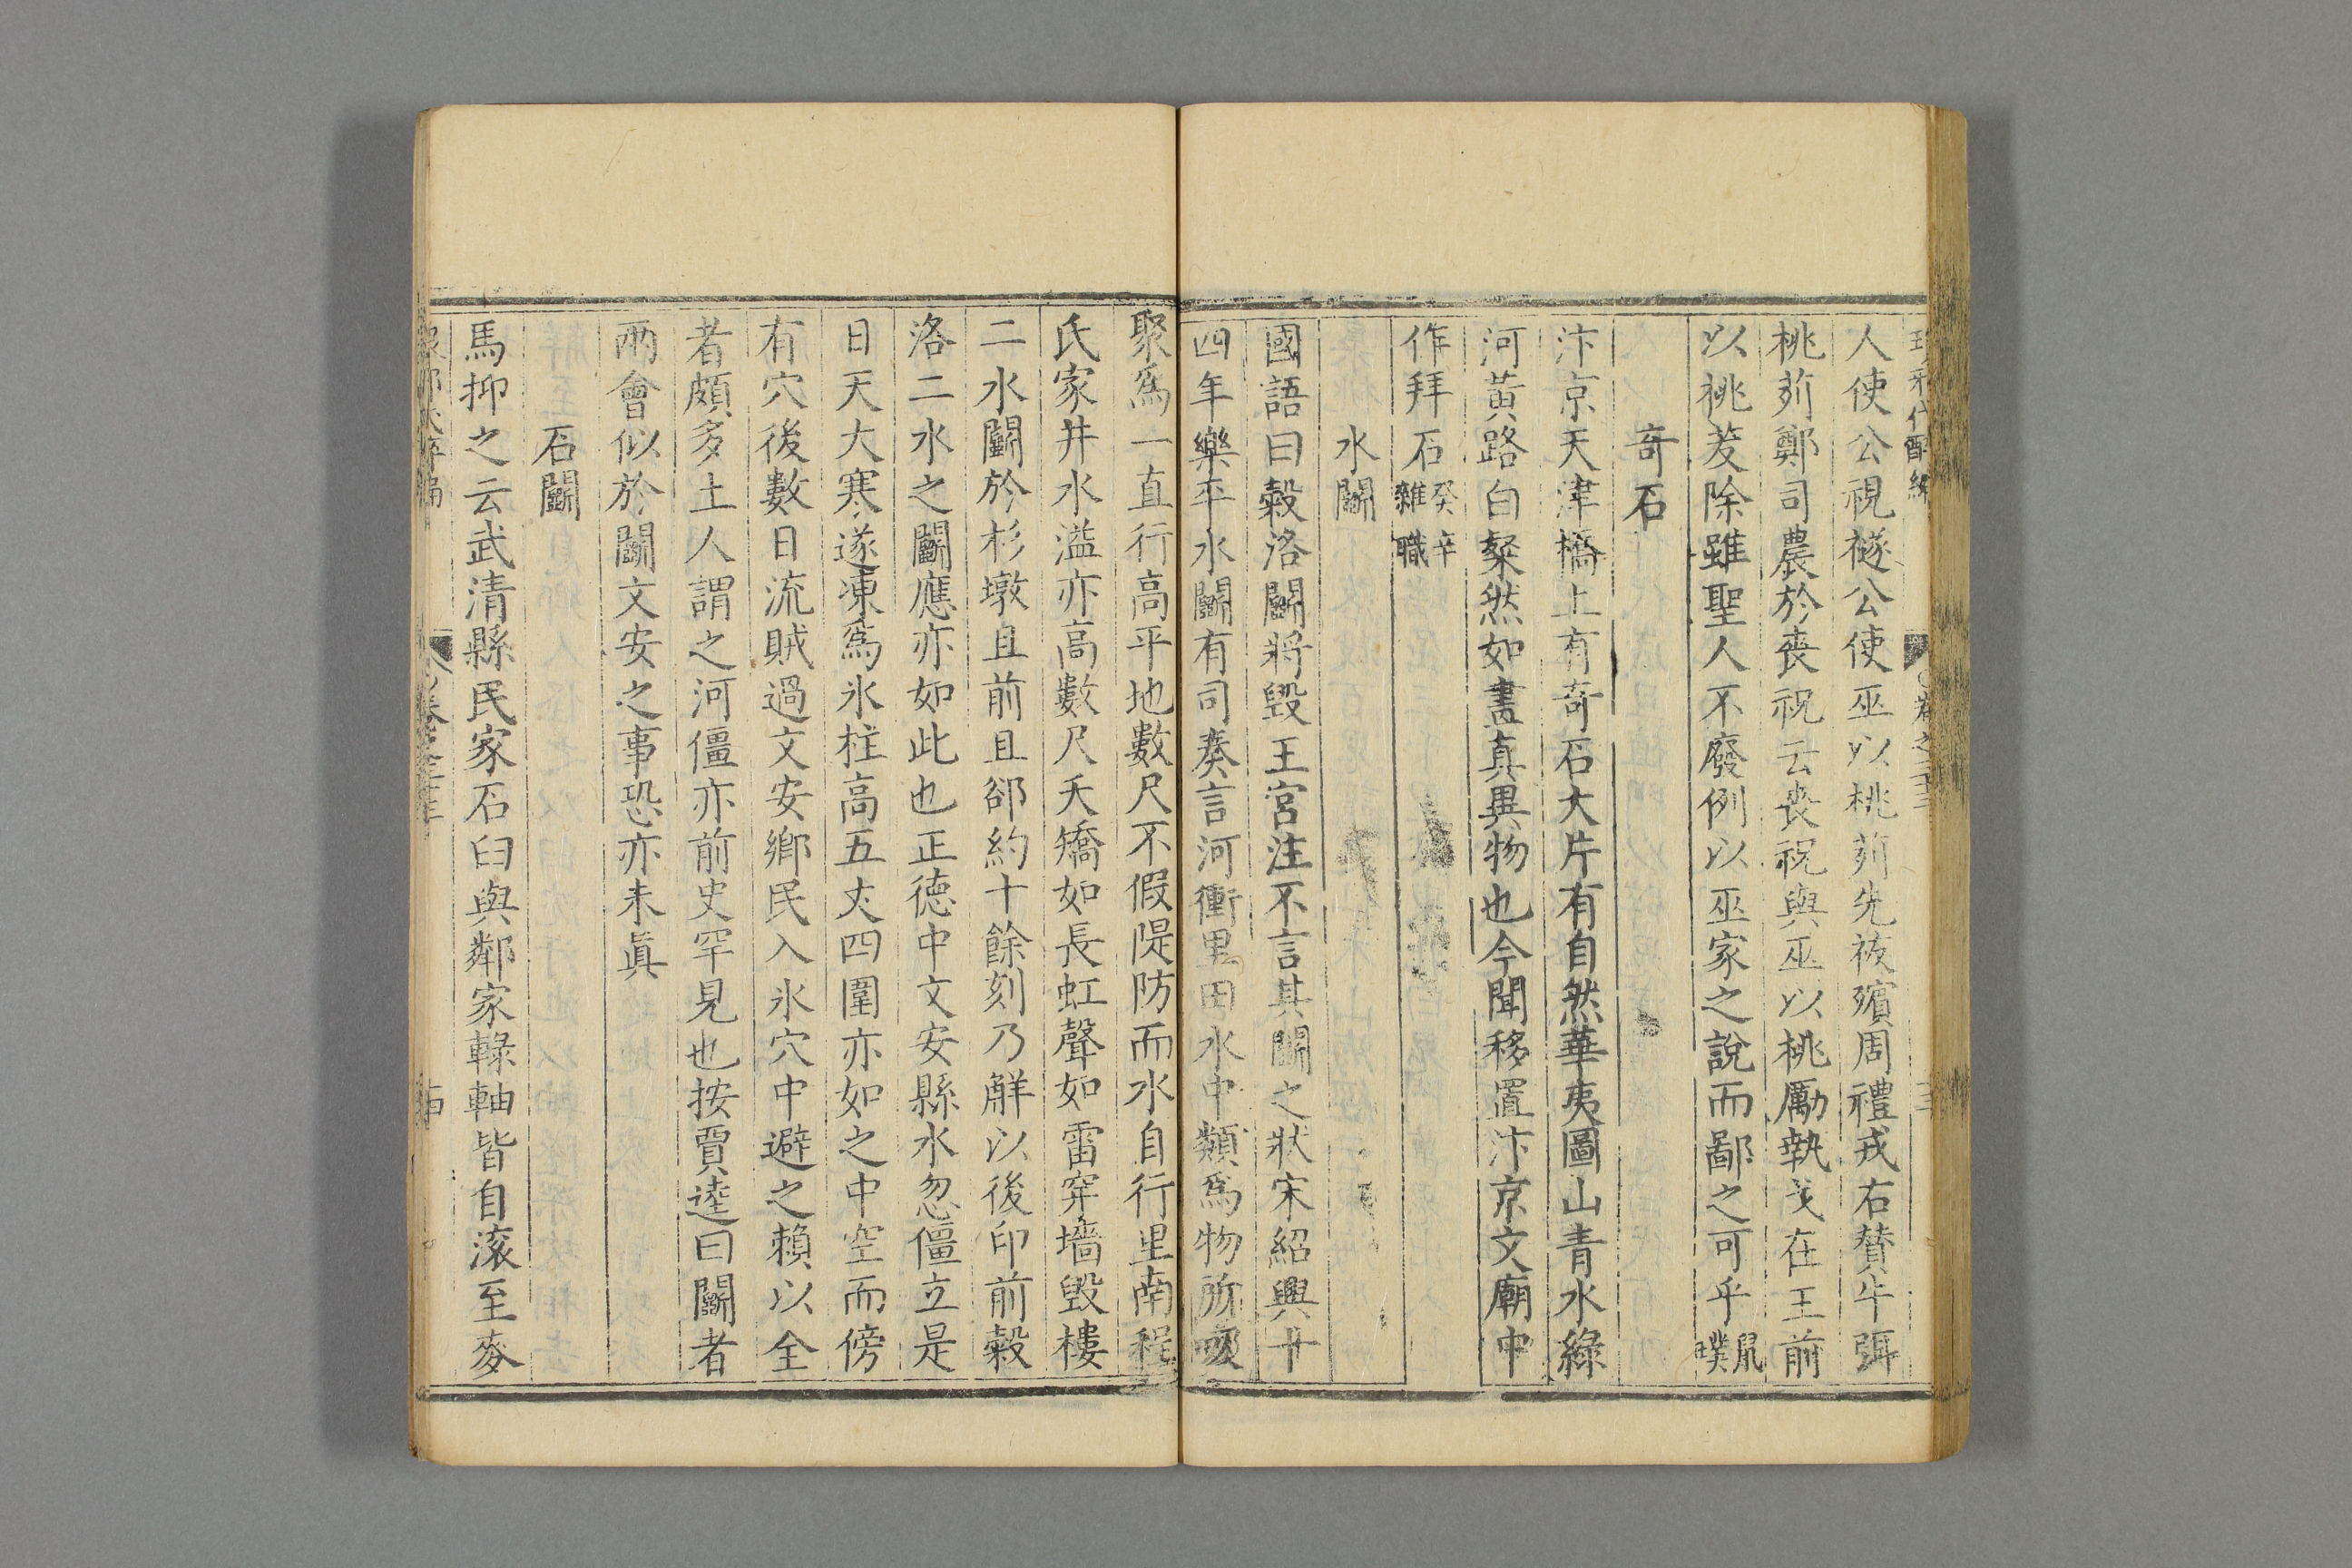 人使公視襚公使巫以桃茢先祓殯周禮戎右賛牛弭
桃茢鄭司農於喪祝云喪祝與巫以桃厲執戈在王前
以桃茇除雖聖人不廢例以巫家之說而鄙之可乎鼠璞
奇石
汴京天津橋上有奇石大片有自然華夷圖山青水綠
河黃路白粲然如畫真異物也今聞移置汴京文廟中
作拜石癸辛雜職
水鬭
國語曰榖洛鬭將毀王宮注不言其鬭之狀宋紹興十
四年樂平水鬭有司奏言河衝里田水中類爲物所吸
聚爲一直行高平地數尺不假隄防而水自行里南程
氏家井水溢亦高數尺夭矯如長虹聲如雷穿墻毀樓
二水鬭於杉墩且前且郤約十餘刻乃觧以後印前榖
洛二水之鬭應亦如此也正德中文安縣水忽僵立是
日天大寒遂凍爲氷柱高五丈四圍亦如之中空而傍
有穴後數日流賊過文安鄉民入氷穴中避之賴以全
者頗多土人謂之河僵亦前史罕見也按賈逵曰鬭者
兩會似於鬭文安之事恐亦未眞
石鬭
馬抑之云武清縣民家石臼與鄰家輚軸皆自滚至麥